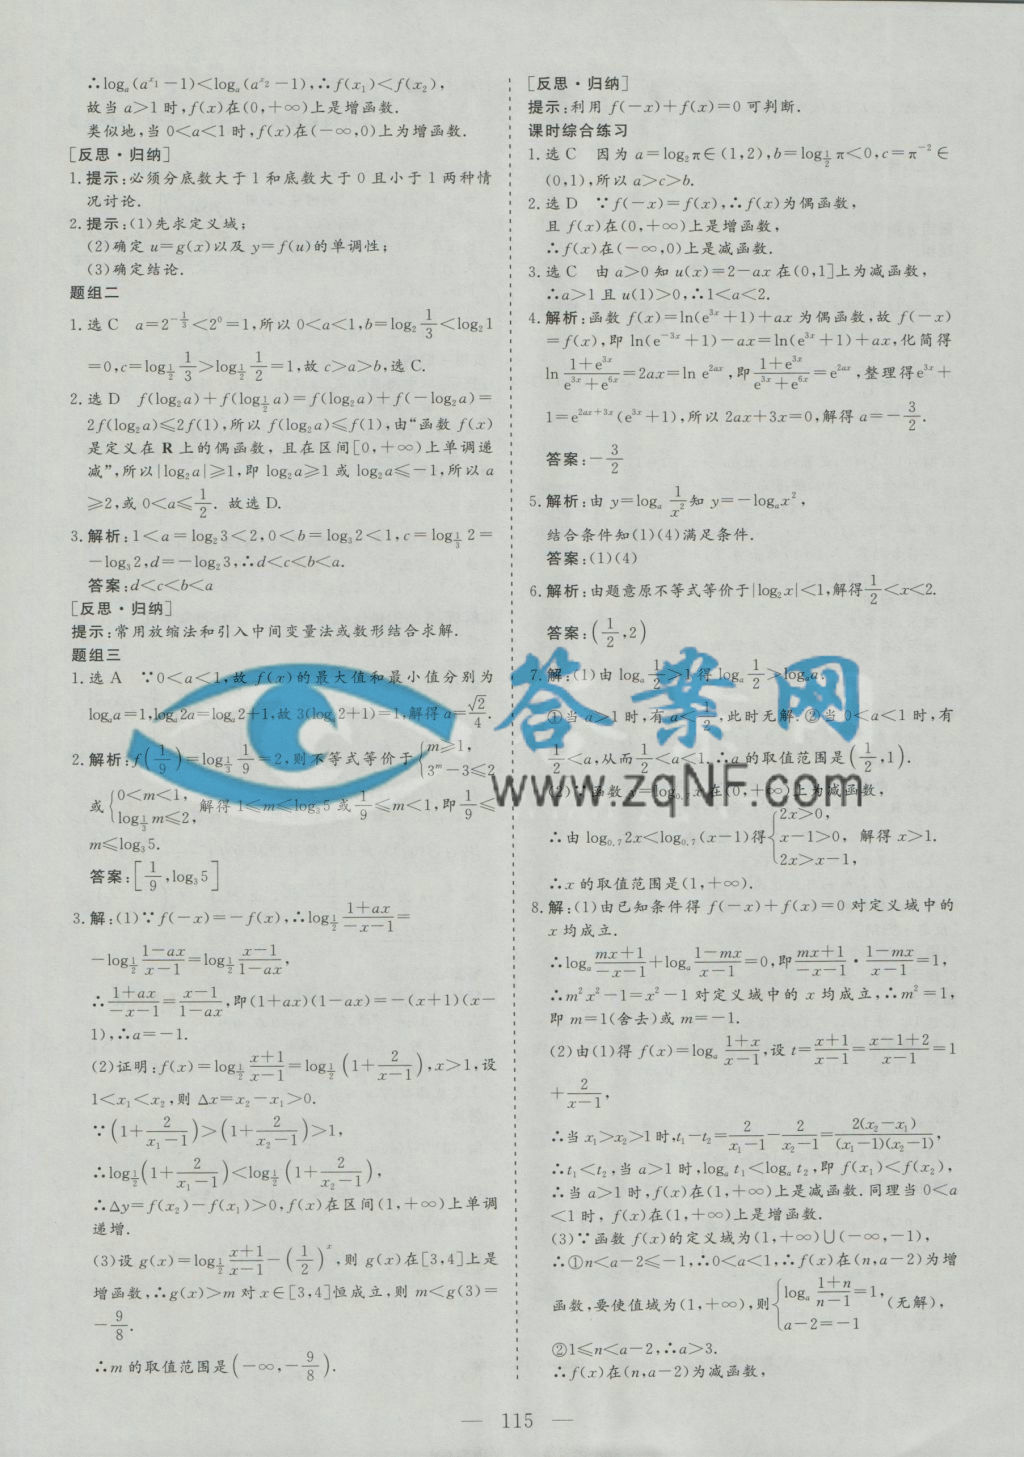 ∴logₐ(a^{x₁}−1)<logₐ(a^{x₂}−1),∴f(x₁)<f(x₂),
故当 a>1 时,f(x)在(0,+∞)上是增函数.
类似地,当 0<a<1 时,f(x)在(−∞,0)上为增函数.
[反思·归纳]
1.提示:必须分底数大于 1 和底数大于 0 且小于 1 两种情
况讨论.
2.提示:(1)先求定义域;
(2)确定 u=g(x)以及 y=f(u)的单调性;
(3)确定结论.
题组二
1.选 C a=2^{−1/3}<2⁰=1,所以 0<a<1,b=log₂ 1/3<log₂1
=0,c=log_{1/2} 1/3>log_{1/2} 1/2=1,故 c>a>b,选 C.
2.选 D f(log₂a)+f(log_{1/2}a)=f(log₂a)+f(−log₂a)=
2f(log₂a)≤2f(1),所以 f(log₂a)≤f(1),由“函数 f(x)
是定义在 R 上的偶函数, 且在区间[0,+∞)上单调递
减”,所以|log₂a|≥1,即 log₂a≥1 或 log₂a≤−1,所以 a
≥2,或 0<a≤1/2. 故选 D.
3.解析:1<a=log₂3<2,0<b=log₃2<1,c=log_{1/3}2=
−log₃2,d=−log₂3,∴d<c<b<a.
答案:d<c<b<a
[反思·归纳]
提示:常用放缩法和引入中间变量法或数形结合求解.
题组三
1.选 A ∵0<a<1,故 f(x)的最大值和最小值分别为
logₐa=1,logₐ2a=logₐ2+1,故 3(logₐ2+1)=1,解得 a=√2/4.
2.解析:f(1/9)=log_{1/3} 1/9=2,则不等式等价于{m≥1, 3^m−3≤2
或{0<m<1, log_{1/3}m≤2, 解得 1≤m≤log₃5 或 1/9≤m<1,即 1/9≤
m≤log₃5.
答案:[1/9,log₃5]
3.解:(1)∵f(−x)=−f(x),∴log_{1/2} (1+ax)/(−x−1)=
−log_{1/2} (1−ax)/(x−1)=log_{1/2} (x−1)/(1−ax),
∴(1+ax)/(−x−1)=(x−1)/(1−ax),即(1+ax)(1−ax)=−(x+1)(x−
1),∴a=−1.
(2)证明:f(x)=log_{1/2} (x+1)/(x−1)=log_{1/2}(1+2/(x−1)),x>1,设
1<x₁<x₂,则 Δx=x₂−x₁>0.
∵(1+2/(x₁−1))>(1+2/(x₂−1))>1,
∴log_{1/2}(1+2/(x₁−1))<log_{1/2}(1+2/(x₂−1)),
∴Δy=f(x₂)−f(x₁)>0,f(x)在区间(1,+∞)上单调
递增.
(3)设 g(x)=log_{1/2} (x+1)/(x−1)−(1/2)^x,则 g(x)在[3,4]上是
增函数,∴g(x)>m 对 x∈[3,4]恒成立,则 m<g(3)=
−9/8.
∴m 的取值范围是(−∞,−9/8).
[反思·归纳]
提示:利用 f(−x)+f(x)=0 可判断.
课时综合练习
1.选 C 因为 a=log₂π∈(1,2),b=log_{1/2}π<0,c=π^{−2}∈
(0,1),所以 a>c>b.
2.选 D ∵f(−x)=f(x),∴f(x)为偶函数,
且 f(x)在(0,+∞)上是增函数,
∴f(x)在(−∞,0)上是减函数.
3.选 C 由 a>0 知 u(x)=2−ax 在(0,1]上为减函数,
∴a>1 且 u(1)>0,∴1<a<2.
4.解析:函数 f(x)=ln(e^{3x}+1)+ax 为偶函数,故 f(−x)
=f(x),即 ln(e^{−3x}+1)−ax=ln(e^{3x}+1)+ax,化简得
ln (1+e^{3x})/(e^{3x}+e^{6x})=2ax=ln e^{2ax},即(1+e^{3x})/(e^{3x}+e^{6x})=e^{2ax},整理得e^{3x}+
1=e^{2ax+3x}(e^{3x}+1),所以 2ax+3x=0,解得 a=−3/2.
答案:−3/2
5.解析:由 y=logₐ 1/x² 知 y=−logₐx²,
结合条件知(1)(4)满足条件.
答案:(1)(4)
6.解析:由题意原不等式等价于|log₂x|<1,解得1/2<x<2.
答案:(1/2,2)
7.解:(1)由 logₐ 1/2>1得 logₐ 1/2>logₐa.
①当 a>1 时,有 a<1/2,此时无解.②当 0<a<1 时,有
1/2<a,从而1/2<a<1.∴a 的取值范围是(1/2,1).
(2)∵函数 y=log₀.₇x 在(0,+∞)上为减函数,
∴由 log₀.₇2x<log₀.₇(x−1)得{2x>0, x−1>0, 2x>x−1, 解得 x>1.
∴x 的取值范围是(1,+∞).
8.解:(1)由已知条件得 f(−x)+f(x)=0 对定义域中的
x 均成立.
∴logₐ (mx+1)/(−x−1)+logₐ (1−mx)/(x−1)=0,即(mx+1)/(−x−1)·(1−mx)/(x−1)=1,
∴m²x²−1=x²−1 对定义域中的 x 均成立,∴m²=1,
即 m=1(舍去)或 m=−1.
(2)由(1)得 f(x)=logₐ (1+x)/(x−1),设 t=(x+1)/(x−1)=(x−1+2)/(x−1)=1
+2/(x−1),
∴当 x₁>x₂>1 时,t₁−t₂=2/(x₁−1)−2/(x₂−1)=2(x₂−x₁)/((x₁−1)(x₂−1)),
∴t₁<t₂,当 a>1 时,logₐt₁<logₐt₂,即 f(x₁)<f(x₂),
∴当 a>1 时,f(x)在(1,+∞)上是减函数.同理当 0<a
<1 时, f(x)在(1,+∞)上是增函数.
(3)∵函数 f(x)的定义域为(1,+∞)∪(−∞,−1),
∴①n<a−2≤−1,∴0<a<1,∴f(x)在(n,a−2)为增
函数,要使值域为(1,+∞),则{logₐ (1+n)/(n−1)=1, a−2=−1 (无解),
②1≤n<a−2,∴a>3.
∴f(x)在(n,a−2)为减函数,
— 115 —
答案网
www.zqNF.com